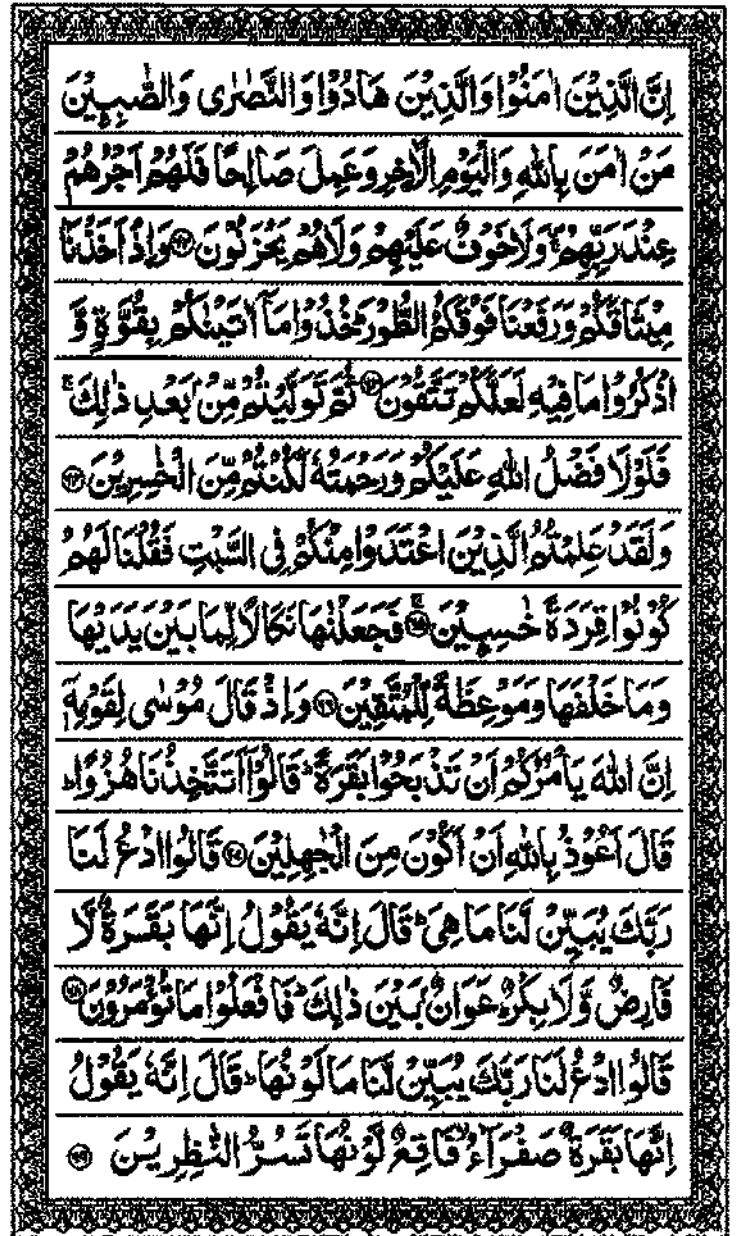 اِنَّ الَّذِيْنَ اٰمَنُوْا وَالَّذِيْنَ هَادُوْا وَالنَّصٰرٰى وَالصّٰبِـِٕيْنَ
مَنْ اٰمَنَ بِاللّٰهِ وَالْيَوْمِ الْاٰخِرِ وَعَمِلَ صَالِحًا فَلَهُمْ اَجْرُهُمْ
عِنْدَ رَبِّهِمْ ۚ وَلَا خَوْفٌ عَلَيْهِمْ وَلَا هُمْ يَحْزَنُوْنَ ﴿۶۲﴾ وَاِذْ اَخَذْنَا
مِيْثَاقَكُمْ وَرَفَعْنَا فَوْقَكُمُ الطُّوْرَ ؕ خُذُوْا مَاۤ اٰتَيْنٰكُمْ بِقُوَّةٍ وَّ
اذْكُرُوْا مَا فِيْهِ لَعَلَّكُمْ تَتَّقُوْنَ ﴿۶۳﴾ ثُمَّ تَوَلَّيْتُمْ مِّنْۢ بَعْدِ ذٰلِكَ ۚ
فَلَوْلَا فَضْلُ اللّٰهِ عَلَيْكُمْ وَرَحْمَتُهٗ لَكُنْتُمْ مِّنَ الْخٰسِرِيْنَ ﴿۶۴﴾
وَلَقَدْ عَلِمْتُمُ الَّذِيْنَ اعْتَدَوْا مِنْكُمْ فِى السَّبْتِ فَقُلْنَا لَهُمْ
كُوْنُوْا قِرَدَةً خٰسِـِٕيْنَ ۚ ﴿۶۵﴾ فَجَعَلْنٰهَا نَكَالًا لِّمَا بَيْنَ يَدَيْهَا
وَمَا خَلْفَهَا وَمَوْعِظَةً لِّلْمُتَّقِيْنَ ﴿۶۶﴾ وَاِذْ قَالَ مُوْسٰى لِقَوْمِهٖۤ
اِنَّ اللّٰهَ يَاْمُرُكُمْ اَنْ تَذْبَحُوْا بَقَرَةً ؕ قَالُوْۤا اَتَتَّخِذُنَا هُزُوًا ؕ
قَالَ اَعُوْذُ بِاللّٰهِ اَنْ اَكُوْنَ مِنَ الْجٰهِلِيْنَ ﴿۶۷﴾ قَالُوا ادْعُ لَنَا
رَبَّكَ يُبَيِّنْ لَّنَا مَا هِىَ ؕ قَالَ اِنَّهٗ يَقُوْلُ اِنَّهَا بَقَرَةٌ لَّا
فَارِضٌ وَّلَا بِكْرٌ ؕ عَوَانٌۢ بَيْنَ ذٰلِكَ ؕ فَافْعَلُوْا مَا تُؤْمَرُوْنَ ﴿۶۸﴾
قَالُوا ادْعُ لَنَا رَبَّكَ يُبَيِّنْ لَّنَا مَا لَوْنُهَا ؕ قَالَ اِنَّهٗ يَقُوْلُ
اِنَّهَا بَقَرَةٌ صَفْرَآءُ ۙ فَاقِعٌ لَّوْنُهَا تَسُرُّ النّٰظِرِيْنَ ﴿۶۹﴾